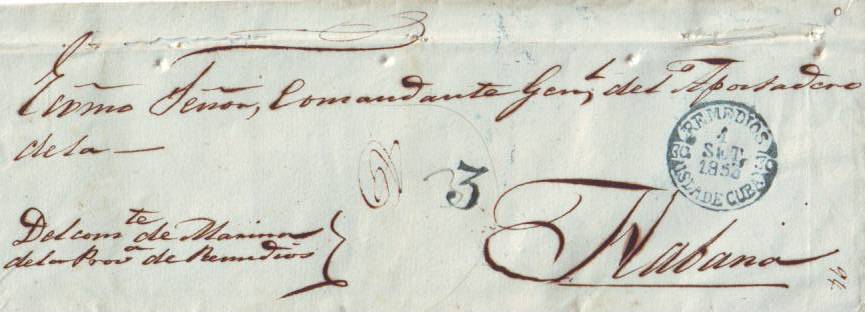 Exc̃mo Señor, Comandante Gen.l del Apostadero
de la —
3
REMEDIOS
1
SET.
1853
ISLA DE CUBA
Del com.te de Marina
de la Prov.a de Remedios
Habana